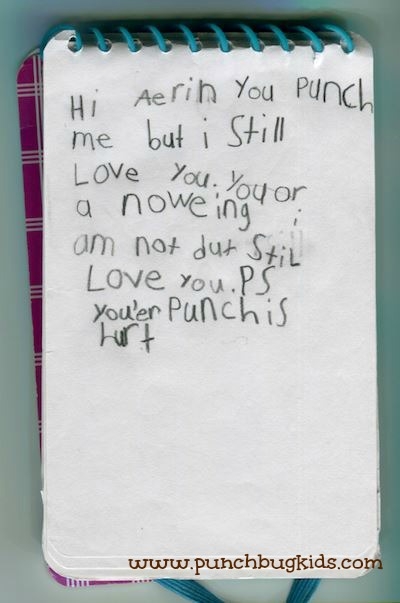 Hi Aerin you Punch
me but i Still
Love you. you or
a noweing i
am not but Still
Love you. PS
you'er Punch is
hurt
www.punchbugkids.com